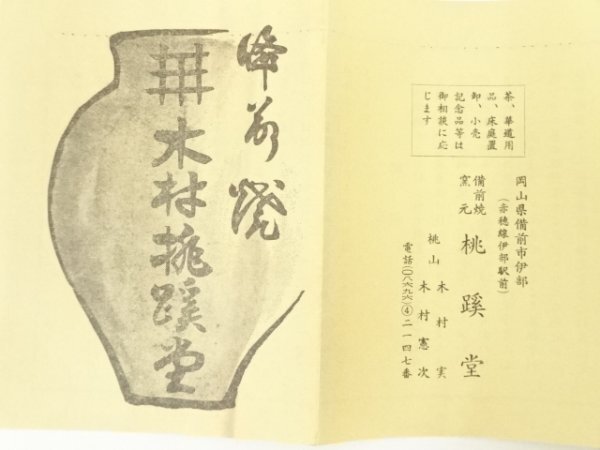 岡山県備前市伊部
(赤穂線伊部駅前)
備前焼
窯元
桃蹊堂
木村実
桃山 木村憲次
電話(〇八六九六)④二一四七番
茶、華道用
品、床庭置
卸、小売
記念品等は
御相談に応
じます
備前焼
木村桃蹊堂